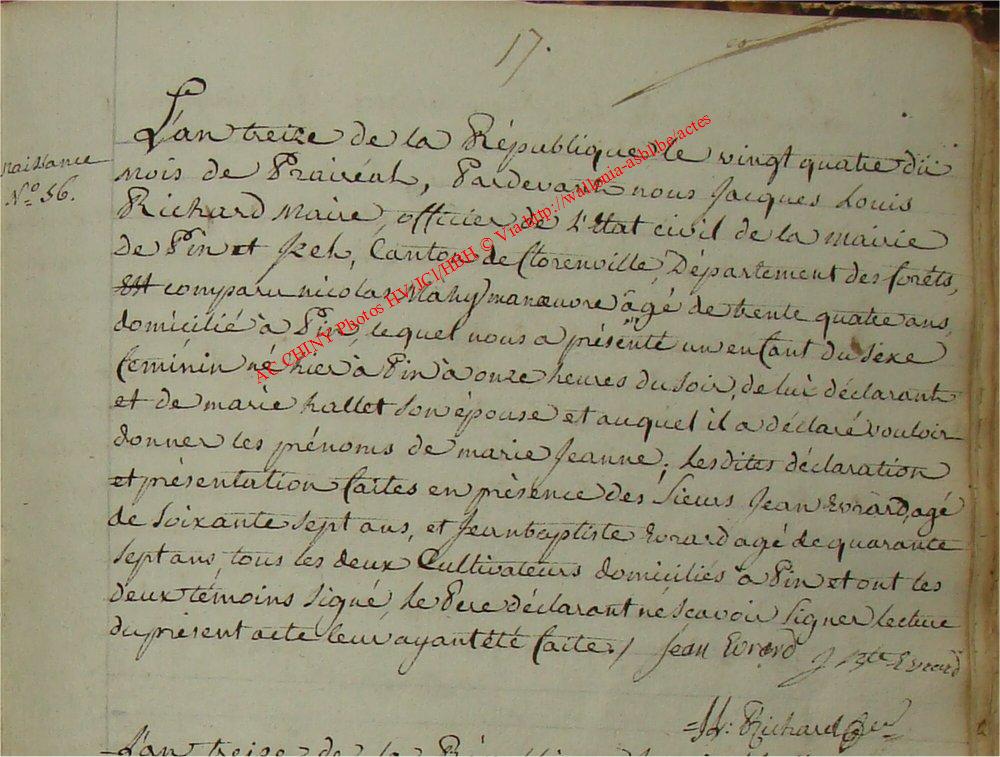 17.
naissance
N.º 56.
L'an treize de la République le vingt quatre du
mois de Prairéal, Pardevant nous Jacques Louis
Richard Maire, officier de l'Etat civil de la mairie
De Pin et Izel, Canton de florenville, Département des forêts,
Est comparu nicolas Mahy manœuvre âgé de trente quatre ans,
domicilié à Pin, lequel nous a présenté un enfant du séxe
féminin né hier à Pin à onze heures du soir, de lui déclarant
et de marie hallet son épouse et auquel il a déclaré vouloir
donner les prénoms de marie Jeanne; Lesdites déclaration
et présentation faites en présence des Sieurs Jean Evrard, agé
de soixante sept ans, et Jeanbaptiste Evrard agé de quarante
sept ans, tous les deux Cultivateurs domiciliés à Pin et ont les
deux témoins signé, le Pere déclarant né scavoir signer lecture
du présent acte leur ayant été faite. / Jean Evrard J Bte Evrard
J L: Richard
L'an treize de la République
At CHINY Photos HV/JCl/HBH © Via http://wallonia-asbl.be/actes